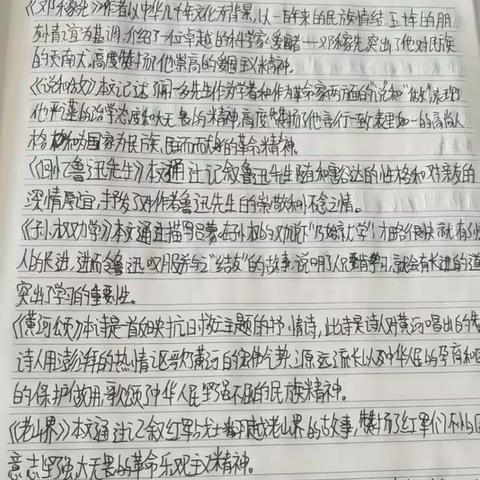 《邓稼先》作者以中华几千年文化为背景,以一百年来的民族情结、五十年的朋
友情谊为基调,介绍了一位卓越的科学家爱国者—邓稼先,突出了他对民族
的贡献大,高度赞扬了他崇高的爱国主义精神。
《说和做》本文记达了闻一多先生作为学者和作为革命家两方面的"说"和"做"表现
他严谨的治学态度和大无畏的精神,高度赞扬了他言行一致表里如一的高尚人
格和为国家为民族的革命精神。
《回忆鲁迅先生》本文通过记叙鲁迅先生的性格和对亲友的
深情厚谊,抒发了对作者鲁迅先生的崇敬和怀念之情。
《孙权劝学》本文通过描写吕蒙在孙权的劝说下"乃始就学",才略很快就有了
人的长进,进而令鲁肃叹服并与之"结友"的故事,说明了人只要肯学习,就会有长进的道
突出了学习的重要性。
《黄河颂》本诗是一首反映抗日救亡主题的抒情诗,此诗是诗人对黄河唱出的
诗人用澎湃的热情讴歌了黄河的气势,源远流长以及对中华民的孕育和
的保护作用,歌颂了中华人民坚强不屈的民族精神。
《老山界》本文通过记叙红军战士翻越老山界的故事,赞扬了红军们不怕
意志坚强大无畏的革命乐观主义精神。